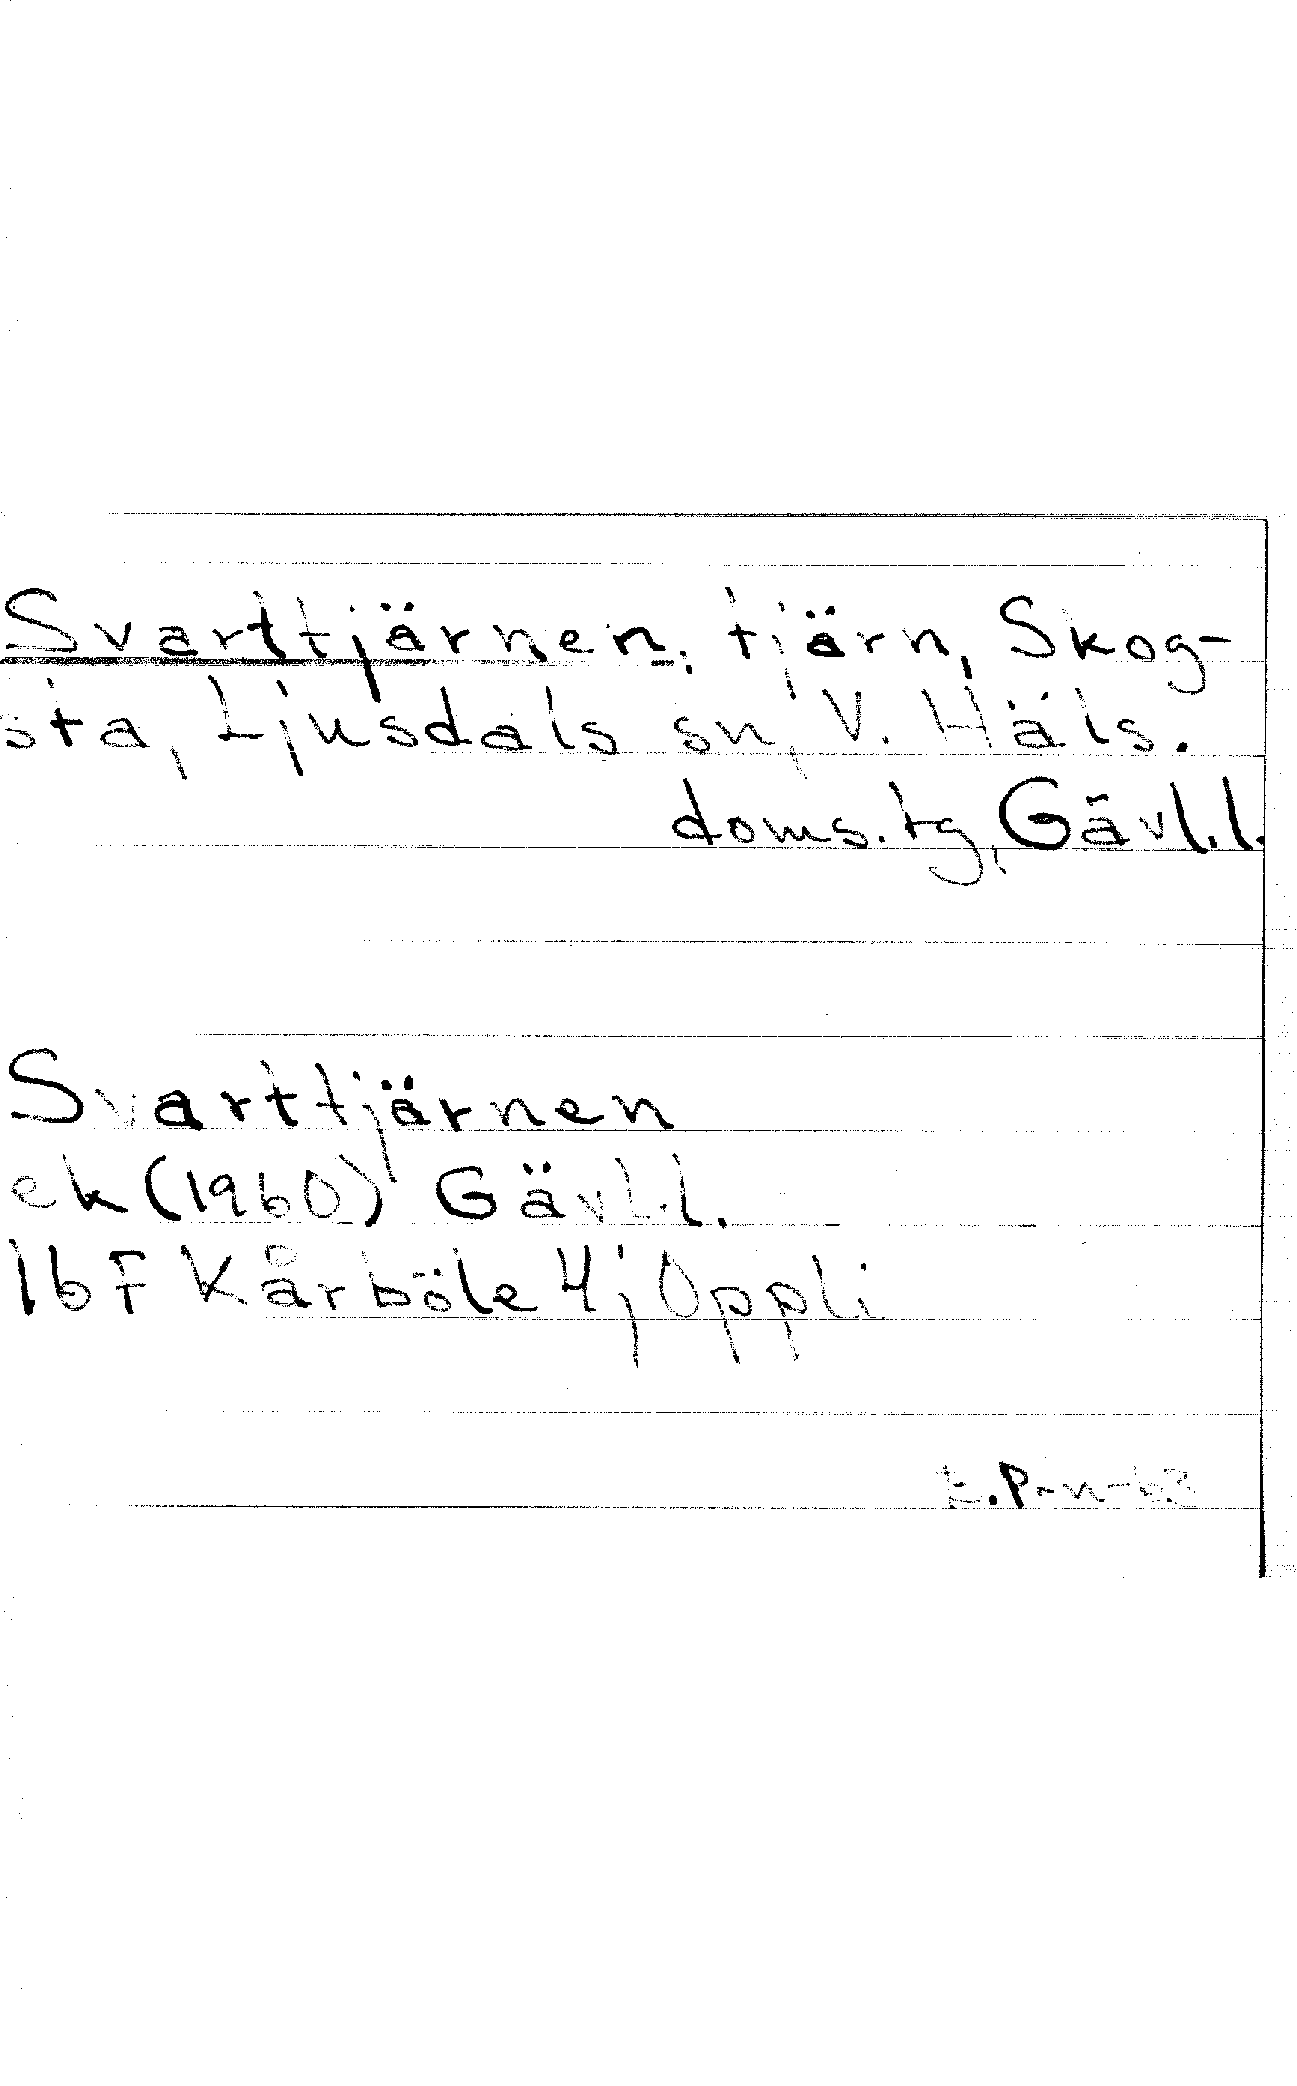 Svarttjärnen, tjärn, Skog-
sta, Ljusdals sn, V. Häls.
doms. tg, Gävl.l.
Svarttjärnen
ek (1960) Gävl.l.
16F Kårböle 4j Oppli
E.P-n-63